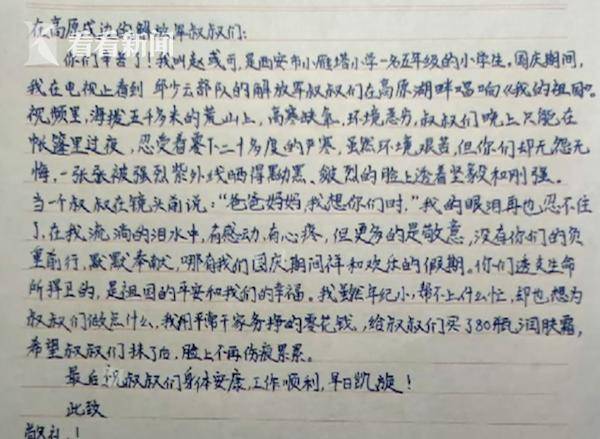 看看新闻
在高原戍边的解放军叔叔们:
你们辛苦了!我叫赵彧可,是西安市小雁塔小学一名五年级的小学生。国庆期间,
我在电视上看到邱少云部队的解放军叔叔们在高原湖畔唱响《我的祖国》。
视频里,海拨五千多米的荒山上,高寒缺氧,环境恶劣,叔叔们晚上只能在
帐篷里过夜,忍受着零下二十多度的严寒。虽然环境艰苦,但你们却无怨无
悔,一张张被强烈紫外线晒得黝黑、皴裂的脸上透着坚毅和刚强。
当一个叔叔在镜头前说:“爸爸妈妈,我想你们时,”我的眼泪再也忍不住
了,在我流淌的泪水中,有感动,有心疼,但更多的是敬意,没有你们的负
重前行,默默奉献,哪有我们国庆期间祥和欢乐的假期。你们透支生命
所捍卫的,是祖国的平安和我们的幸福。我虽然年纪小,帮不上什么忙,却也想为
叔叔们做点什么,我用平常干家务挣的零花钱,给叔叔们买了80瓶润肤霜,
希望叔叔们抹了后,脸上不再伤痕累累。
最后祝叔叔们身体安康,工作顺利,早日凯旋!
此致
敬礼!